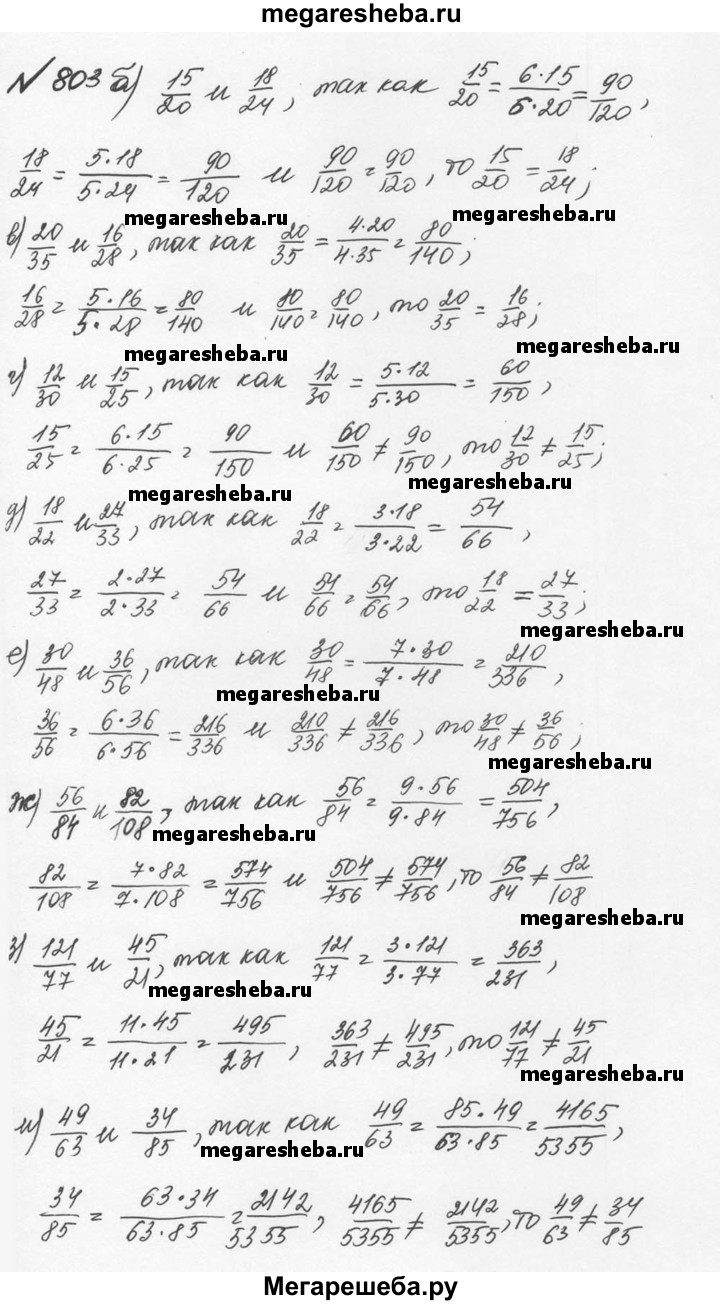 megaresheba.ru
№ 803 б) 15/20 и 18/24, так как 15/20 = 6·15/6·20 = 90/120,
18/24 = 5·18/5·24 = 90/120 и 90/120 = 90/120, то 15/20 = 18/24;
megaresheba.ru megaresheba.ru
в) 20/35 и 16/28, так как 20/35 = 4·20/4·35 = 80/140;
16/28 = 5·16/5·28 = 80/140 и 80/140 = 80/140, то 20/35 = 16/28;
megaresheba.ru megaresheba.ru
г) 12/30 и 15/25, так как 12/30 = 5·12/5·30 = 60/150,
15/25 = 6·15/6·25 = 90/150 и 60/150 ≠ 90/150, то 12/30 ≠ 15/25;
megaresheba.ru megaresheba.ru
д) 18/22 и 27/33, так как 18/22 = 3·18/3·22 = 54/66,
27/33 = 2·27/2·33 = 54/66 и 54/66 = 54/66, то 18/22 = 27/33;
megaresheba.ru
е) 30/48 и 36/56, так как 30/48 = 7·30/7·48 = 210/336,
megaresheba.ru
36/56 = 6·36/6·56 = 216/336 и 210/336 ≠ 216/336, то 30/48 ≠ 36/56;
megaresheba.ru
ж) 56/84 и 82/108, так как 56/84 = 9·56/9·84 = 504/756,
megaresheba.ru
82/108 = 7·82/7·108 = 574/756 и 504/756 ≠ 574/756, то 56/84 ≠ 82/108
megaresheba.ru
з) 121/77 и 45/21, так как 121/77 = 3·121/3·77 = 363/231,
megaresheba.ru
45/21 = 11·45/11·21 = 495/231, 363/231 ≠ 495/231, то 121/77 ≠ 45/21
megaresheba.ru
и) 49/63 и 34/85, так как 49/63 = 85·49/63·85 = 4165/5355,
megaresheba.ru
34/85 = 63·34/63·85 = 2142/5355, 4165/5355 ≠ 2142/5355, то 49/63 ≠ 34/85
megaresheba.ru
Мегарешеба.ру